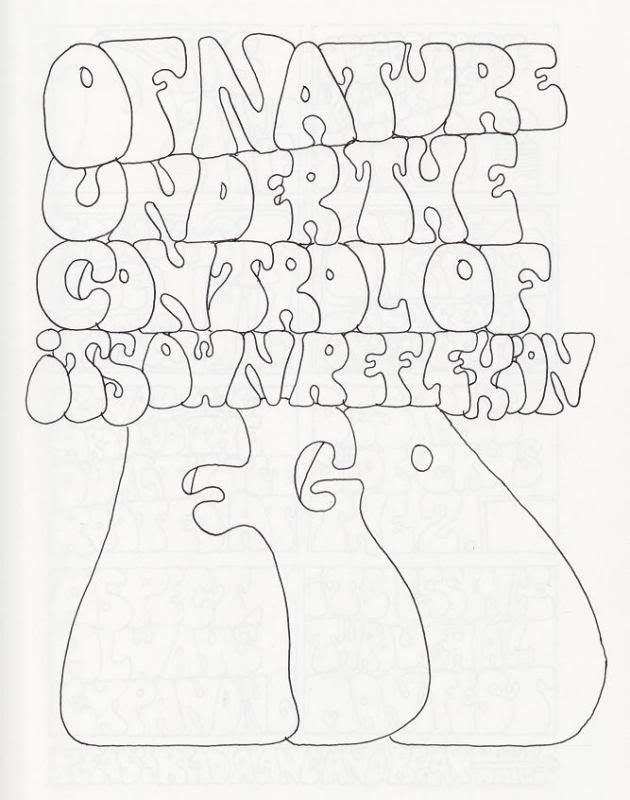 OF NATURE
UNDER THE
CONTROL OF
iTS OWN REFLEXION
EGO